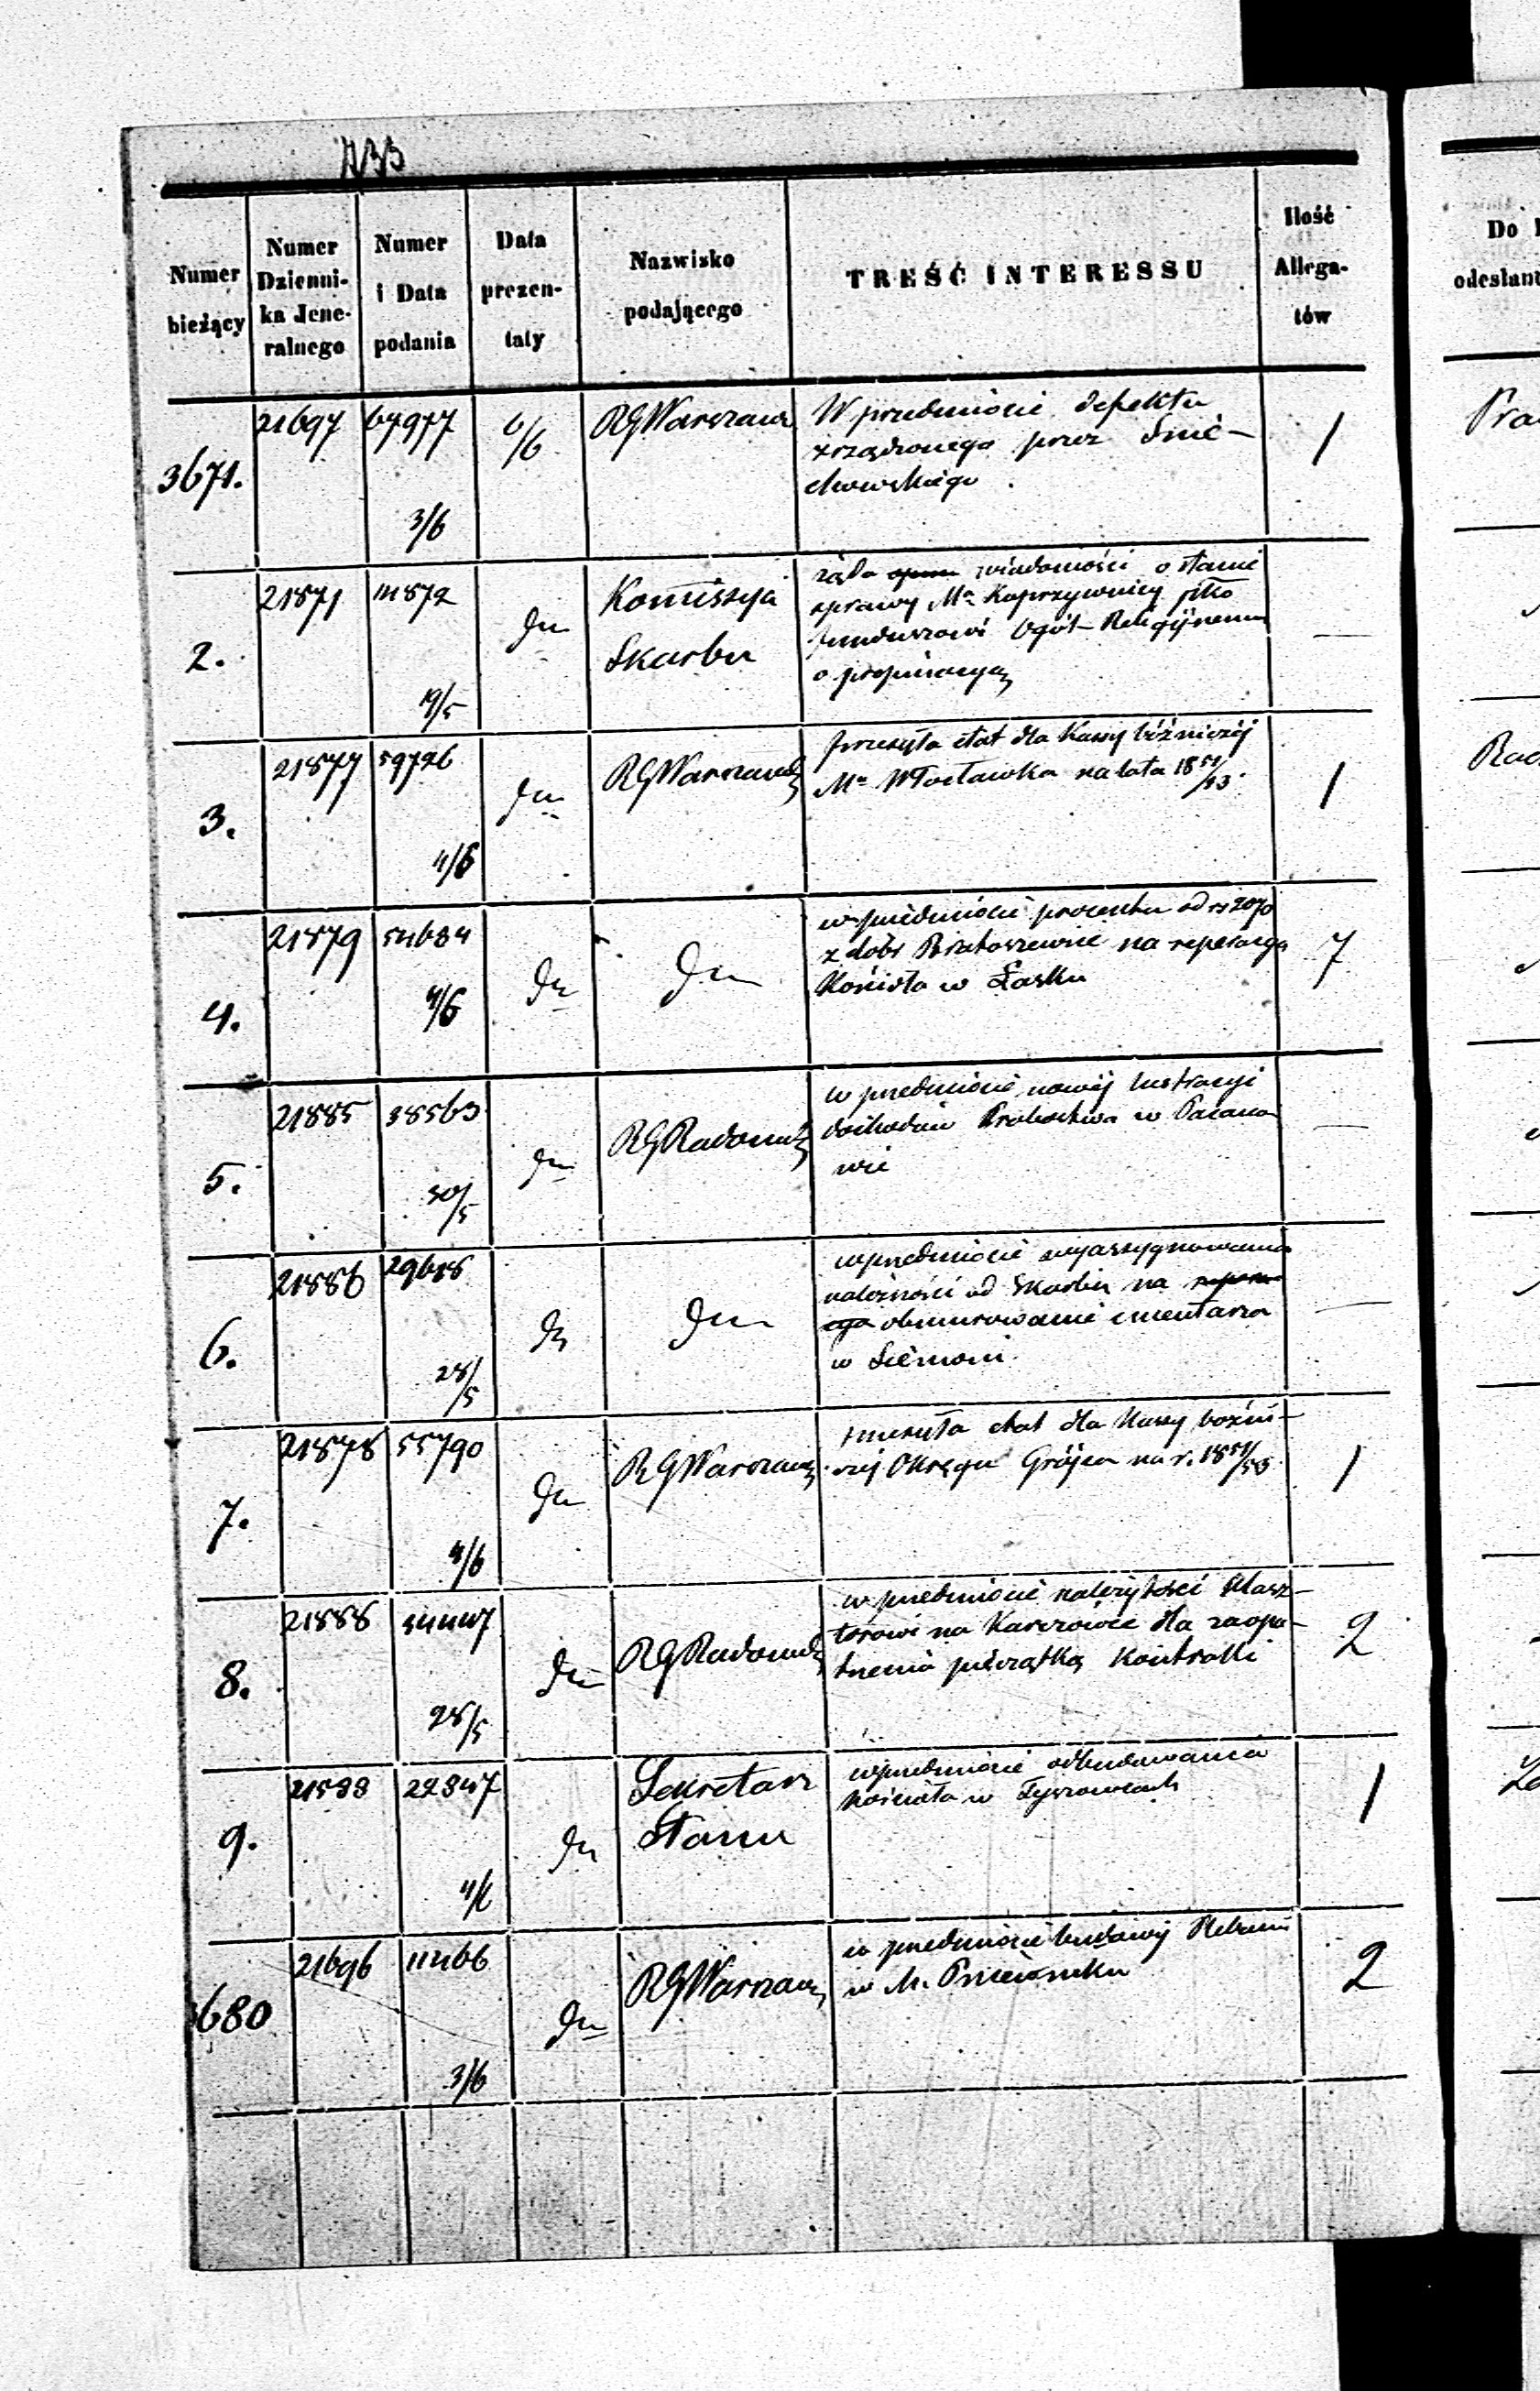 Numer bieżący
Numer Dzienni-
ka Jene-
ralnego
Numer
i Data
podania
Data
prezen-
taty
Nazwisko
podającego
TREŚĆ INTERESSU
Ilość
Allega-
tów
Do
odesłan
3671.
21697
67977
3/6
6/6
RGWarszaws
W przedmiocie defektu
zrządzonego przez Śmie-
chowskiego
1
2.
21871
19/5
dn
Komissya
Skarbu
żąda wiadomości o stanie
sprawy Mta Koprzywnicy ptko
funduszowi Ogół-Religijnemu
o propinacyą
—
3.
21877
59726
4/6
dn
RGWarszawsk
przesyła etat dla Kassy bóżniczéj
Mta Włocławka na lata 1851/53.
1
4.
21879
54634
4/6
dn
dn
w przedmiocie procentu od rs 2070
z dóbr Bratoszewice na reperacyą
Kościoła w Łasku
7
5.
21885
38563
30/5
dn
RGRadomsk
w przedmiocie nowéj lustracyi
dochodów Probostwa w Pacano
wie
—
6.
21886
28/5
dn
dn
w przedmiocie wyassygnowania
należności od Skarbu na
obmurowanie cmentarza
w Siemoni.
—
7.
21878
55790
4/6
dn
RGWarszaws
przesyła etat dla Kassy bożni-
czéj Okręgu Grójca na r. 1851/53
1
8.
21888
28/5
dn
RGRadomsk
w przedmiocie należytości Klasz-
torowi na Karczówce dla zaopa-
trzenia pieczątką Kontrolli
2
9.
22847
4/6
dn
Sekretarz
Stanu
w przedmiocie odbudowania
Kościoła w Tyszowcach
1
680
21696
3/6
dn
RGWarszaws
w przedmiocie budowy Plebanii
w M.
2